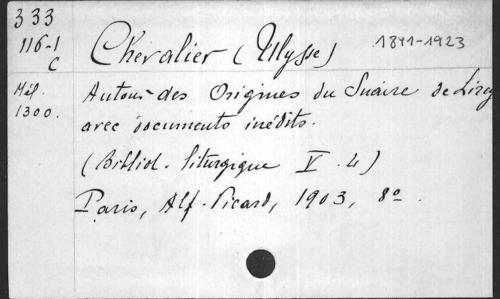 333
116-1
C
Chevalier (Ulysse) 1841-1923
Mél.
1300.
Autour des Origines du Suaire de Lirey
avec documents inédits.
(Bibliot. liturgique V. 4)
Paris, Alf. Picard, 1903, 8º.